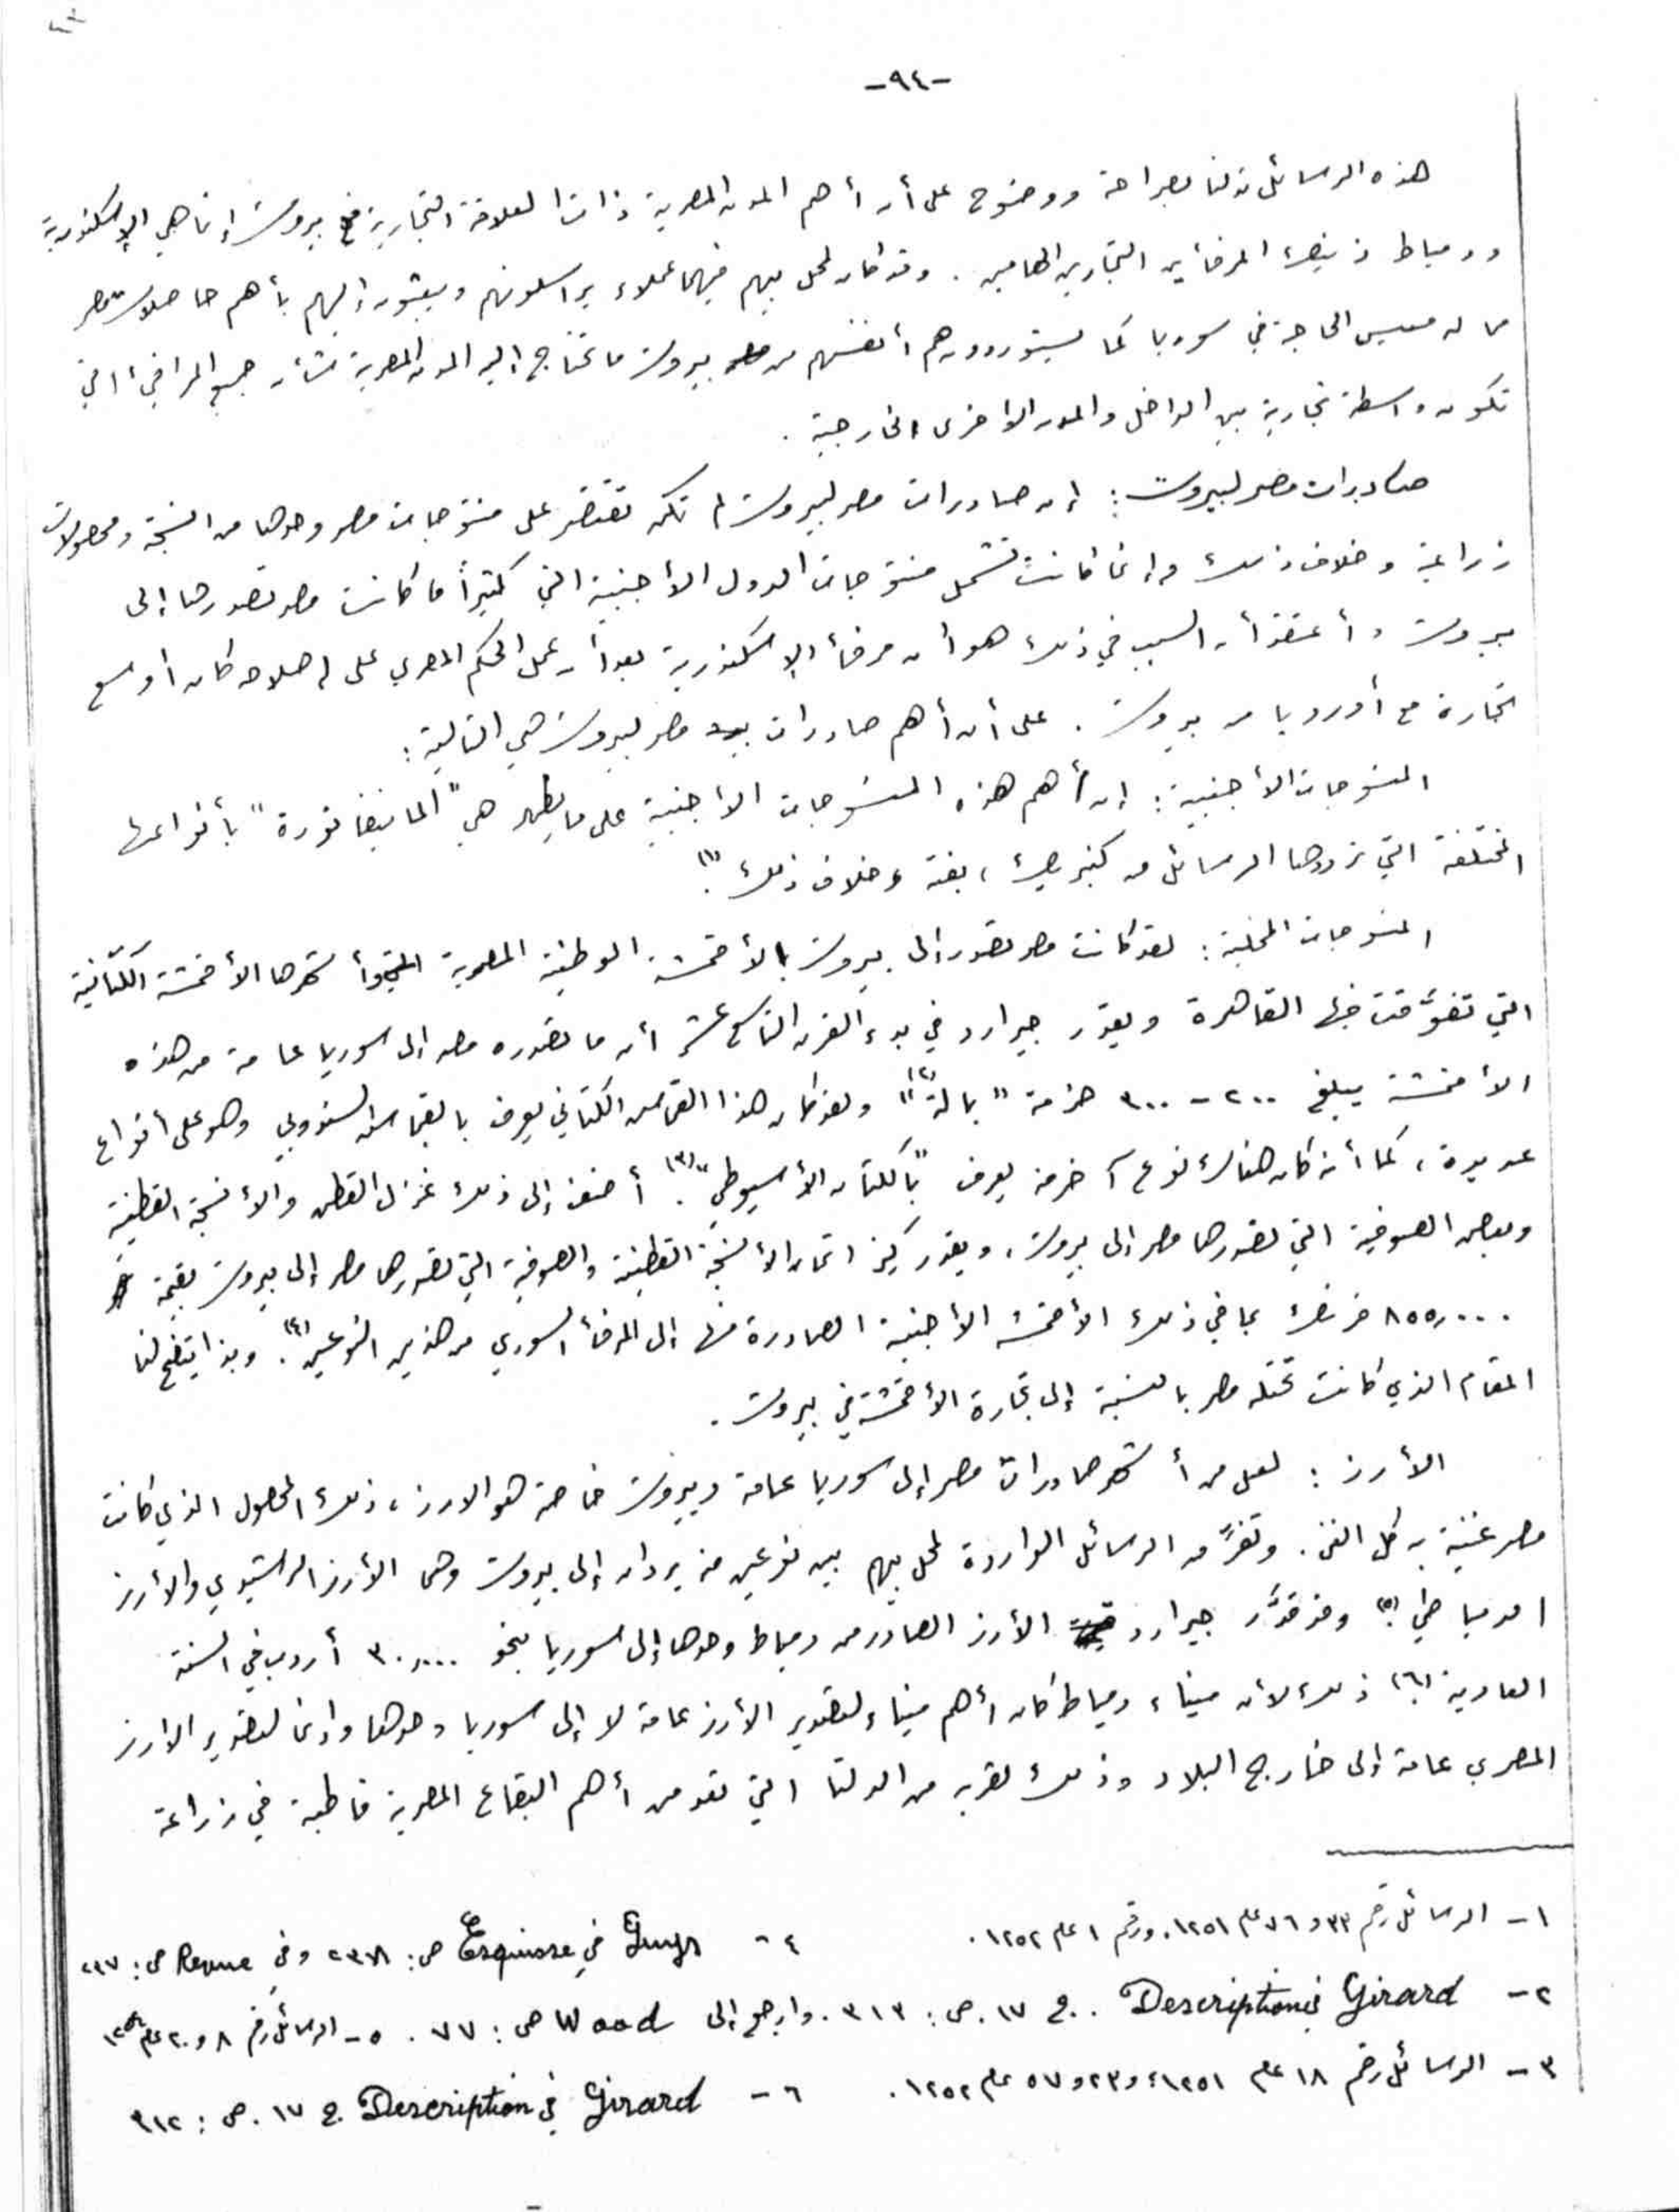 -٩٤-
هذه الرسائل تدلنا بصراحة ووضوح على أن أهم المدن المصرية ذات العلاقة التجارية مع بيروت إنما هي الإسكندرية
ودمياط ذينك المرفأين التجاريين الهامين . وقد كان لمحل بيهم فيهما عملاء يراسلونهم ويبعثون إليهم بأهم حاصلات مصر
مما له مسيس الحاجة في سوريا كما يستوردون هم أنفسهم من بيروت ما تحتاج إليه المدن المصرية شأن جميع المرافئ التي
تكون واسطة تجارية بين الداخل والمدن الاخرى الخارجية .
صادرات مصر لبيروت : إن صادرات مصر لبيروت لم تكن تقتصر على منتوجات مصر وحدها من انسجة ومحصولات
زراعية وخلاف ذلك وإنما كانت تشمل منتوجات الدول الأجنبية التي كثيراً ما كانت مصر تصدرها إلى
بيروت وأعتقد أن السبب في ذلك هو أن مرفأ الإسكندرية بعد أن عمل الحكم المصري على إصلاحه كان أوسع
تجارة مع أوروبا من بيروت . على أن أهم صادرات مصر لبيروت هي التالية :
المنسوجات الأجنبية : إن أهم هذه المنسوجات الأجنبية على ما يظهر هي "المانيفاتورة" بأنواعها
المختلفة التي تزودها الرسائل من ، بفتة وخلاف ذلك (١).
المنسوجات المحلية : لقد كانت مصر تصدر إلى بيروت بالأقمشة الوطنية المصرية وأشهرها الأقمشة الكتّانية
التي تفوّقت فيها القاهرة ويقدّر جيرارد في بدء القرن التاسع عشر أن ما تصدره مصر إلى سوريا عامة من هذه
الأقمشة يبلغ ٢٠٠ - ٣٠٠ حزمة "بالة" (٢) ولقد كان هذا القماش الكتاني يعرف بالقماش السنودبي وهو على أنواع
عديدة ، كما أنه كان هناك نوع آخر منه يعرف "بالكتان الأسيوطي" (٣). أضف إلى ذلك غزل القطن والأنسجة القطنية
وبعض الصوفية التي تصدرها مصر إلى بيروت . ويقدر كيز اثمان الأنسجة القطنية والصوفية التي تصدرها مصر إلى بيروت بقيمة
٨٥٥,٠٠٠ فرنك بما في ذلك الأقمشة الأجنبية الصادرة منها إلى المرفأ السوري من هذين النوعين (٤). وبذا يتضح لنا
المقام الذي كانت تحتله مصر بالنسبة إلى تجارة الأقمشة في بيروت .
الأرز : لعل من أشهر صادرات مصر إلى سوريا عامة وبيروت خاصة هو الارز ، ذلك المحصول الذي كانت
مصر غنية به كل الغنى . وتفرّق الرسائل الواردة لمحل بيهم بين نوعين منه يردان إلى بيروت وهما الأرز الرشيدي والأرز
الدمياطي (٥) وقد قدّر جيرارد الأرز الصادر من دمياط وحدها إلى سوريا بنحو ٣٠,٠٠٠ أردب في السنة
العادية (٦) ذلك لأن ميناء دمياط كان أهم ميناء لتصدير الأرز عامة لا إلى سوريا وحدها وإنما لتصدير الارز
المصري عامة إلى خارج البلاد وذلك لقربه من الدلتا التي تعد من أهم البقاع المصرية قاطبة في زراعة
١- الرسائل رقم ٣٣ و ٧٦ عام ١٢٥١. ورقم ١ عام ١٢٥٢ .
٢- Girard في Description . ج ١٧ . ص : ٣١٣ . وارجع إلى Wood ص : ٧٧ .
٣- الرسائل رقم ١٨ عام ١٢٥١ ، و٢٣ و٥٧ عام ١٢٥٢ .
٤- Guys في Esquisse ص : ٢٣٨ وفي Revue ص : ٢٩٧
٥- الرسائل رقم ٨ و٢٠ عام ١٢٥٢
٦- Girard في Description ج ١٧ . ص : ٣١٢